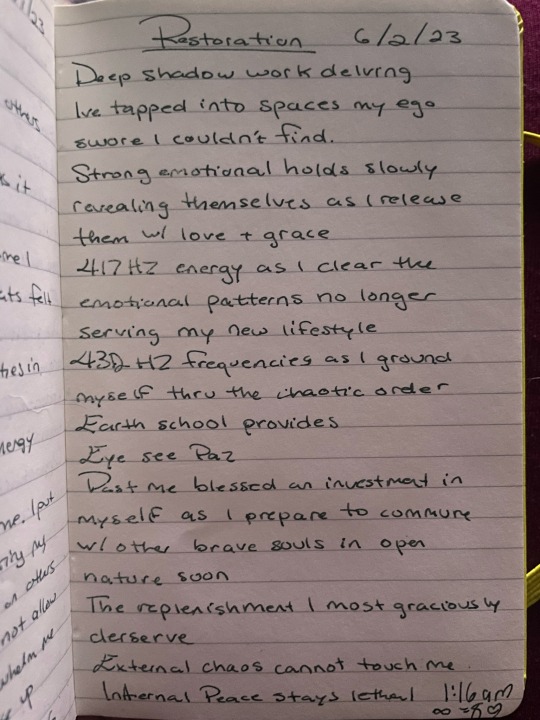 Restoration 6/2/23
Deep shadow work delving
Ive tapped into spaces my ego
swore I couldn't find.
Strong emotional holds slowly
revealing themselves as I release
them w/ love + grace
417 HZ energy as I clear the
emotional patterns no longer
serving my new lifestyle
432 HZ frequencies as I ground
myself thru the chaotic order
Earth school provides
Eye see Paz
Past me blessed an investment in
myself as I prepare to commune
w/ other brave souls in open
nature soon
The replenishment I most graciously
derserve
External chaos cannot touch me.
Internal Peace stays lethal 1:16 am
1/23
others
s it
me I
ts felt
nergy
me. I put
on others
not allow
whelm me
up